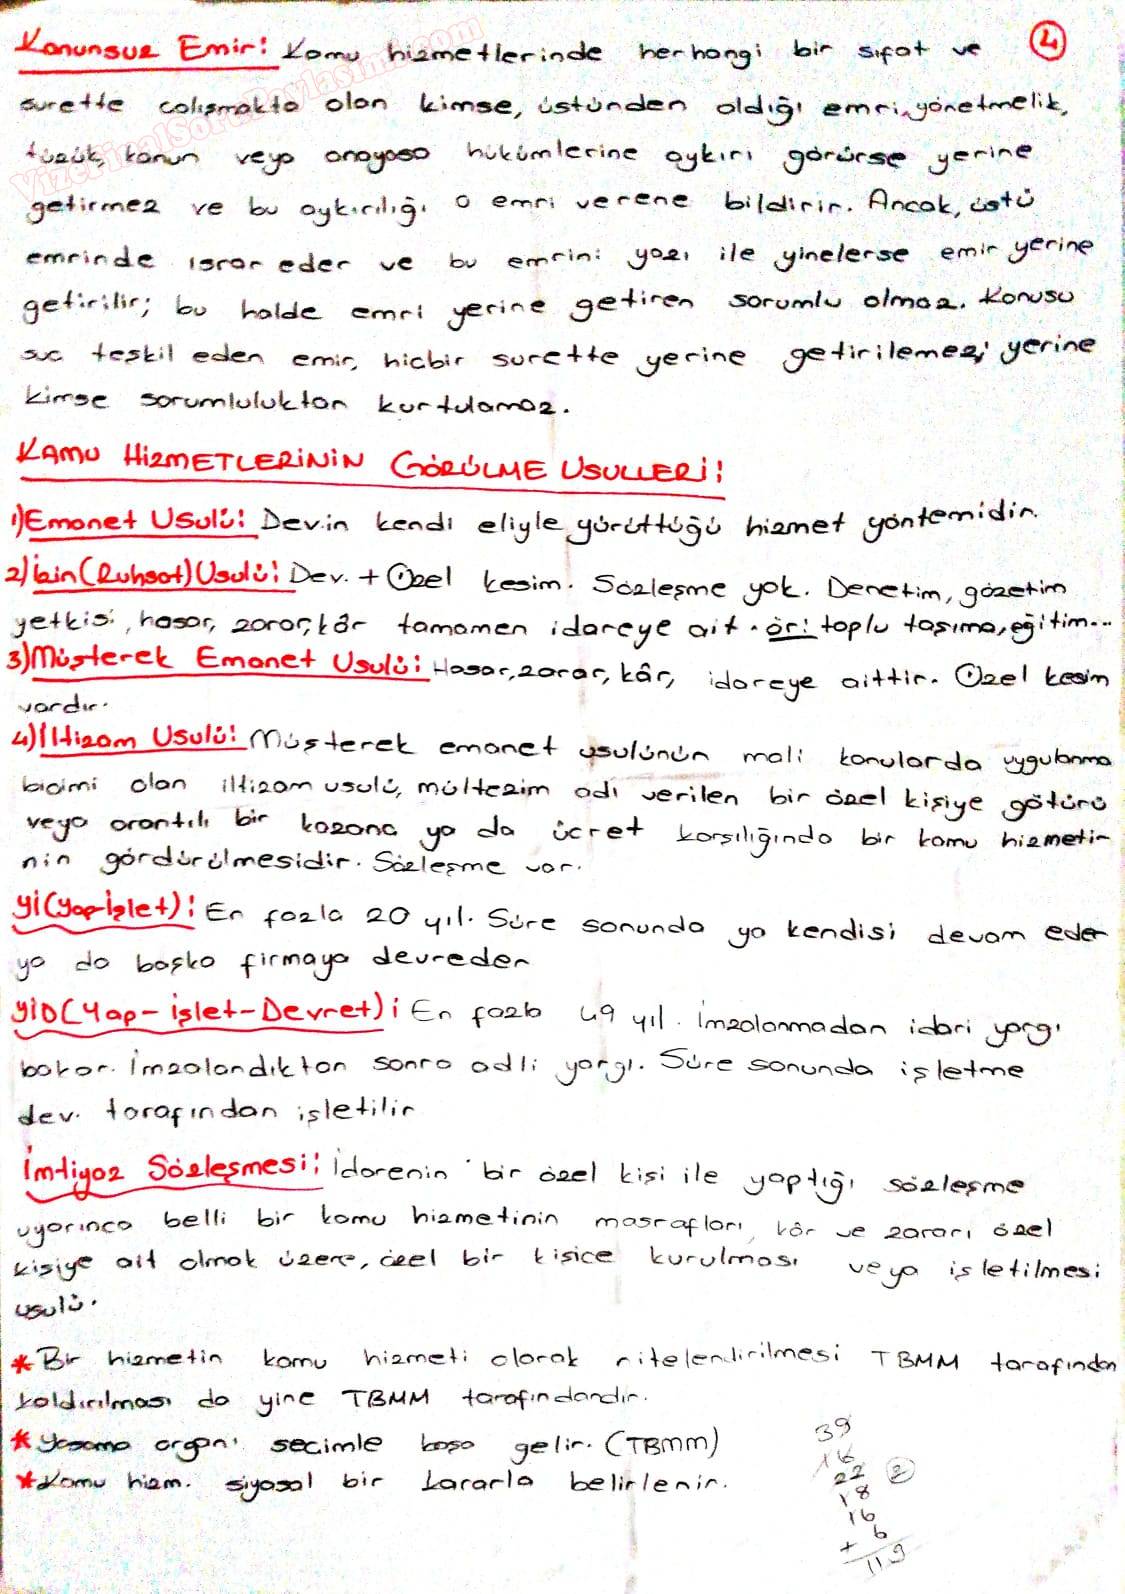 Kanunsuz Emir: Kamu hizmetlerinde herhangi bir sıfat ve
4
surette calışmakta olan kimse, üstünden aldığı emri, yönetmelik,
tüzük, kanun veya anayasa hükümlerine aykırı görürse yerine
getirmez ve bu aykırılığı o emri verene bildirir. Ancak, üstü
emrinde ısrar eder ve bu emrini yazı ile yinelerse emir yerine
getirilir; bu halde emri yerine getiren sorumlu olmaz. Konusu
suc teşkil eden emir, hicbir surette yerine getirilemez; yerine
kimse sorumluluktan kurtulamaz.
KAMU HİZMETLERİNİN GÖRÜLME USULLERİ:
1)Emanet Usulü: Dev.in kendi eliyle yürüttüğü hizmet yöntemidir.
2)İzin(Ruhsat)Usulü: Dev. + Özel kesim. Sözleşme yok. Denetim, gözetim
yetkisi, hasar, zarar, kâr tamamen idareye ait. ör: toplu taşıma, eğitim...
3)Müşterek Emanet Usulü: Hasar, zarar, kâr, idareye aittir. Özel kesim
vardır.
4)İltizam Usulü: Müşterek emanet usulünün mali konularda uygulanma
bicimi olan iltizam usulü, mültezim adı verilen bir özel kişiye götürü
veya orantılı bir kazanc ya da ücret karşılığında bir kamu hizmeti-
nin gördürülmesidir. Sözleşme var.
Yİ(Yap-İşlet): En fazla 20 yıl. Süre sonunda ya kendisi devam eder
ya da başka firmaya devreder
YİD(Yap-İşlet-Devret): En fazla 49 yıl. İmzalanmadan idari yargı
bakar. İmzalandıktan sonra adli yargı. Süre sonunda işletme
dev. tarafından işletilir
İmtiyaz Sözleşmesi: İdarenin bir özel kişi ile yaptığı sözleşme
uyarınca belli bir kamu hizmetinin masrafları, kâr ve zararı özel
kişiye ait olmak üzere, özel bir kişice kurulması veya işletilmesi
usulü.
* Bir hizmetin kamu hizmeti olarak nitelendirilmesi TBMM tarafından
kaldırılması da yine TBMM tarafındandır.
* Yasama organı secimle başa gelir. (TBMM)
* Kamu hizm. siyasal bir kararla belirlenir.
39
16
22 2
18
16
+ 6
119
VizeFinalSoruPaylasimi.com